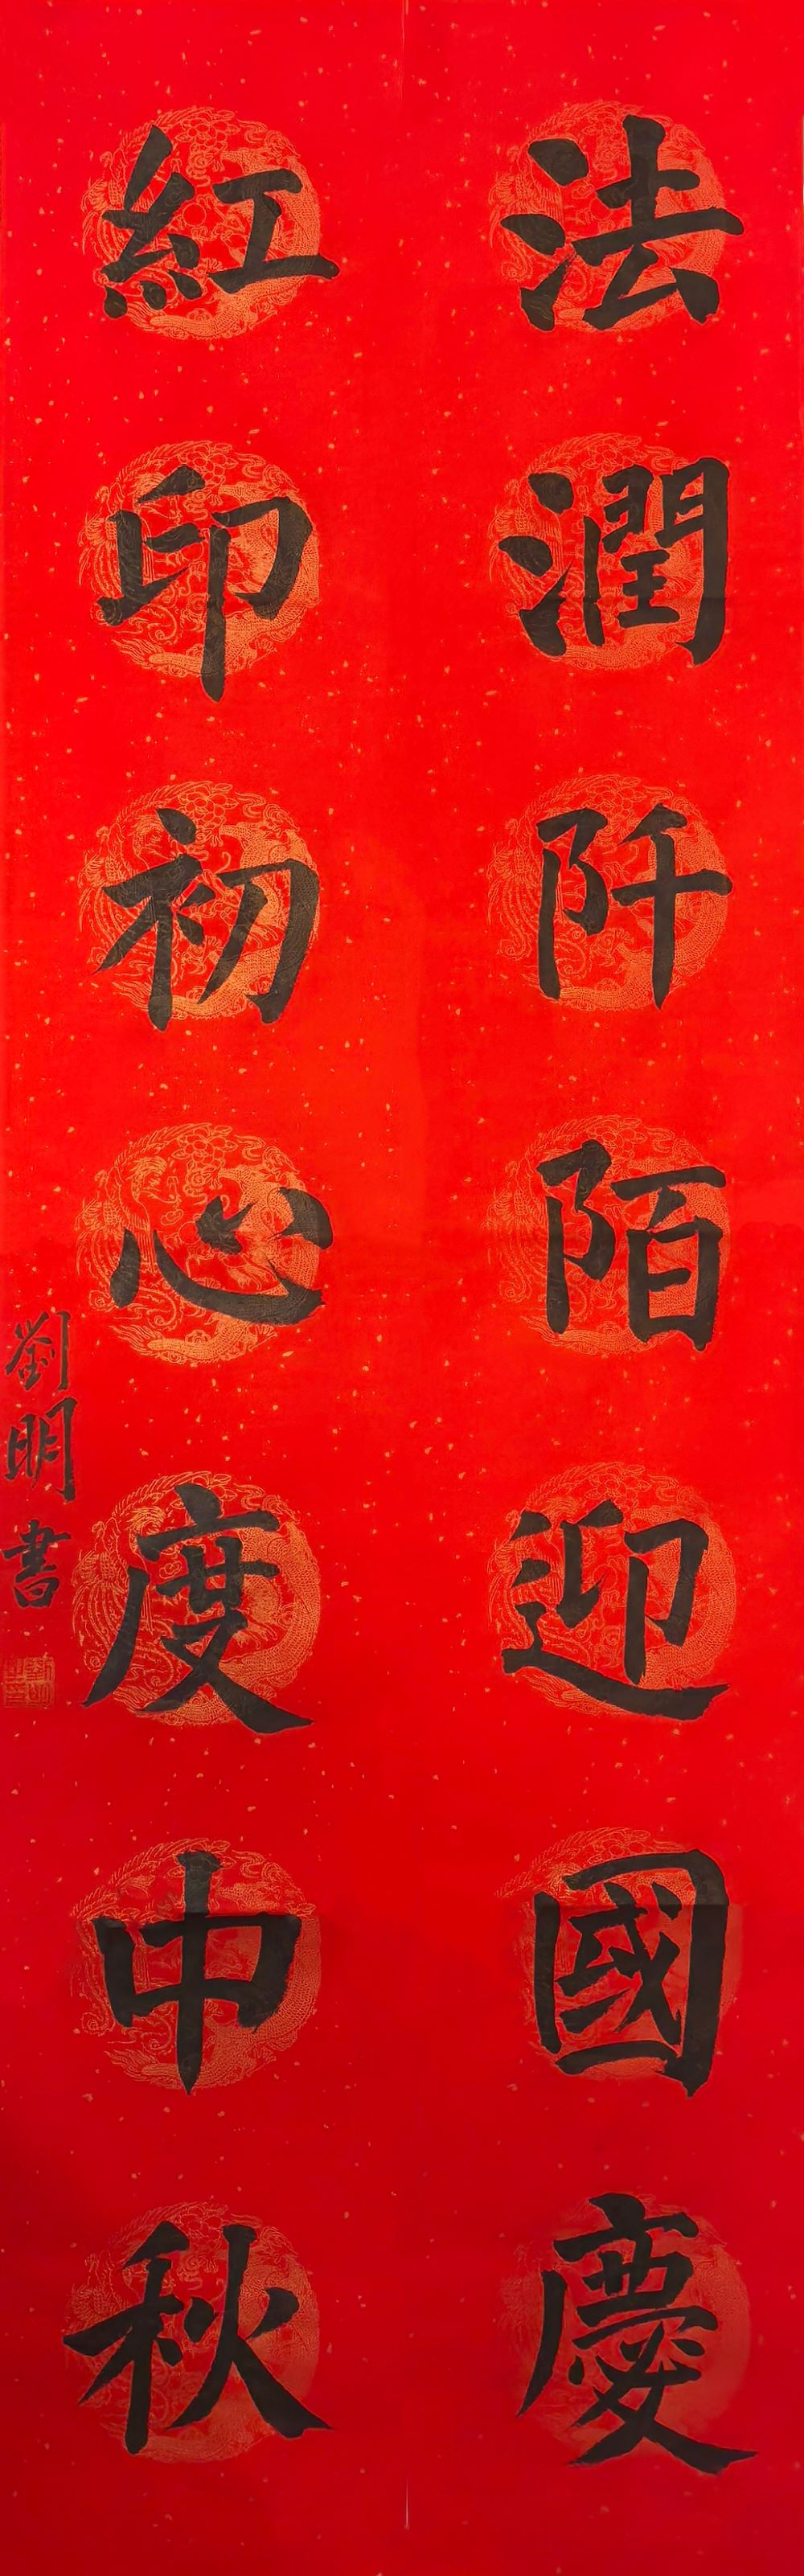 法潤阡陌迎國慶
紅印初心度中秋
劉明書